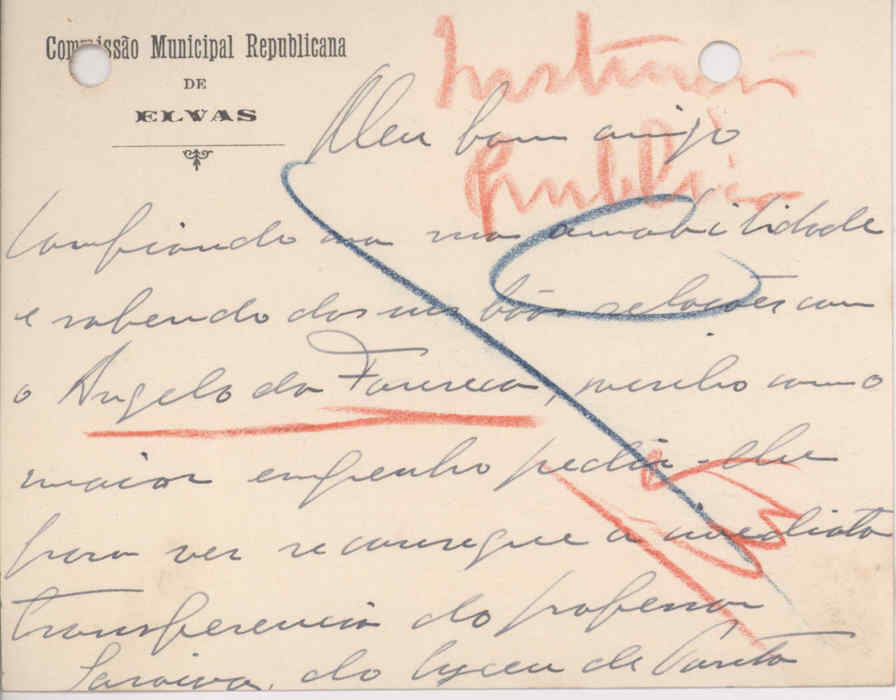 Commissão Municipal Republicana
DE
ELVAS
Instrução
Publica
Meu bom amigo
Confiando na sua amabilidade
e sabendo das suas bôas relações com
o Angelo da Fonseca, venho com o
maior empenho pedir-lhe
para ver se consegue a imediata
transferencia do professor
Saraiva, do lyceu de